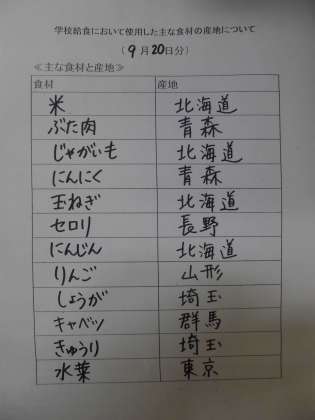 学校給食において使用した主な食材の産地について
(9月20日分)
≪主な食材と産地≫
食材 産地
米 北海道
ぶた肉 青森
じゃがいも 北海道
にんにく 青森
玉ねぎ 北海道
セロリ 長野
にんじん 北海道
りんご 山形
しょうが 埼玉
キャベツ 群馬
きゅうり 埼玉
水菜 東京